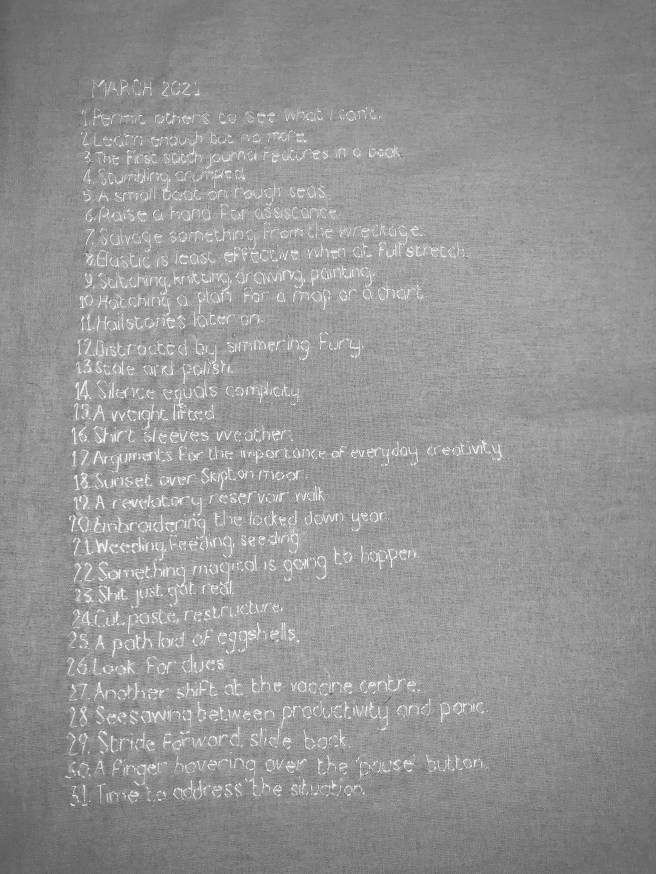 MARCH 2021
1. Permit others to see what I can't.
2. Learn enough but no more.
3. The first stitch journal features in a book.
4. Stumbling, crumpled.
5. A small boat on rough seas.
6. Raise a hand for assistance.
7. Salvage something from the wreckage.
8. Elastic is least effective when at full stretch.
9. Stitching, knitting, drawing, painting.
10. Hatching a plan for a map or a chart.
11. Hailstones later on.
12. Distracted by simmering fury.
13. Scale and polish.
14. Silence equals complicity.
15. A weight lifted.
16. Shirt sleeves weather.
17. Arguments for the importance of everyday creativity.
18. Sunset over Skipton moor.
19. A revelatory reservoir walk.
20. Embroidering the locked down year.
21. Weeding, feeding, seeding.
22. Something magical is going to happen.
23. Shit just got real.
24. Cut, paste, restructure.
25. A path laid of eggshells.
26. Look for clues
27. Another shift at the vaccine centre.
28. Seesawing between productivity and panic.
29. Stride forward, slide back.
30. A finger hovering over the 'pause' button.
31. Time to address the situation.